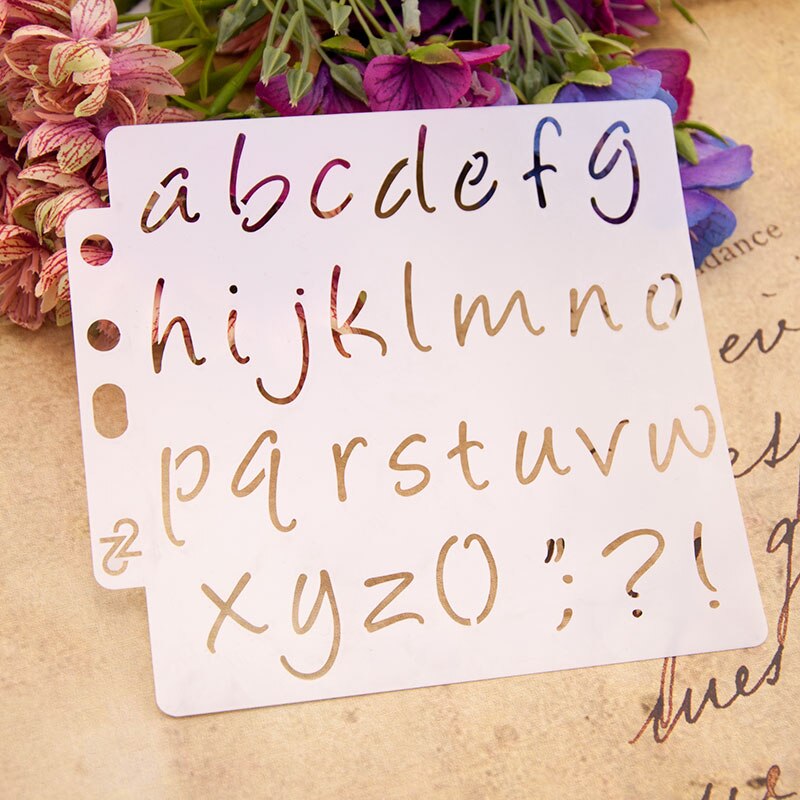 abcdefg
hijklmno
pqrstuvw
xyz()";?!
22
dance
ev